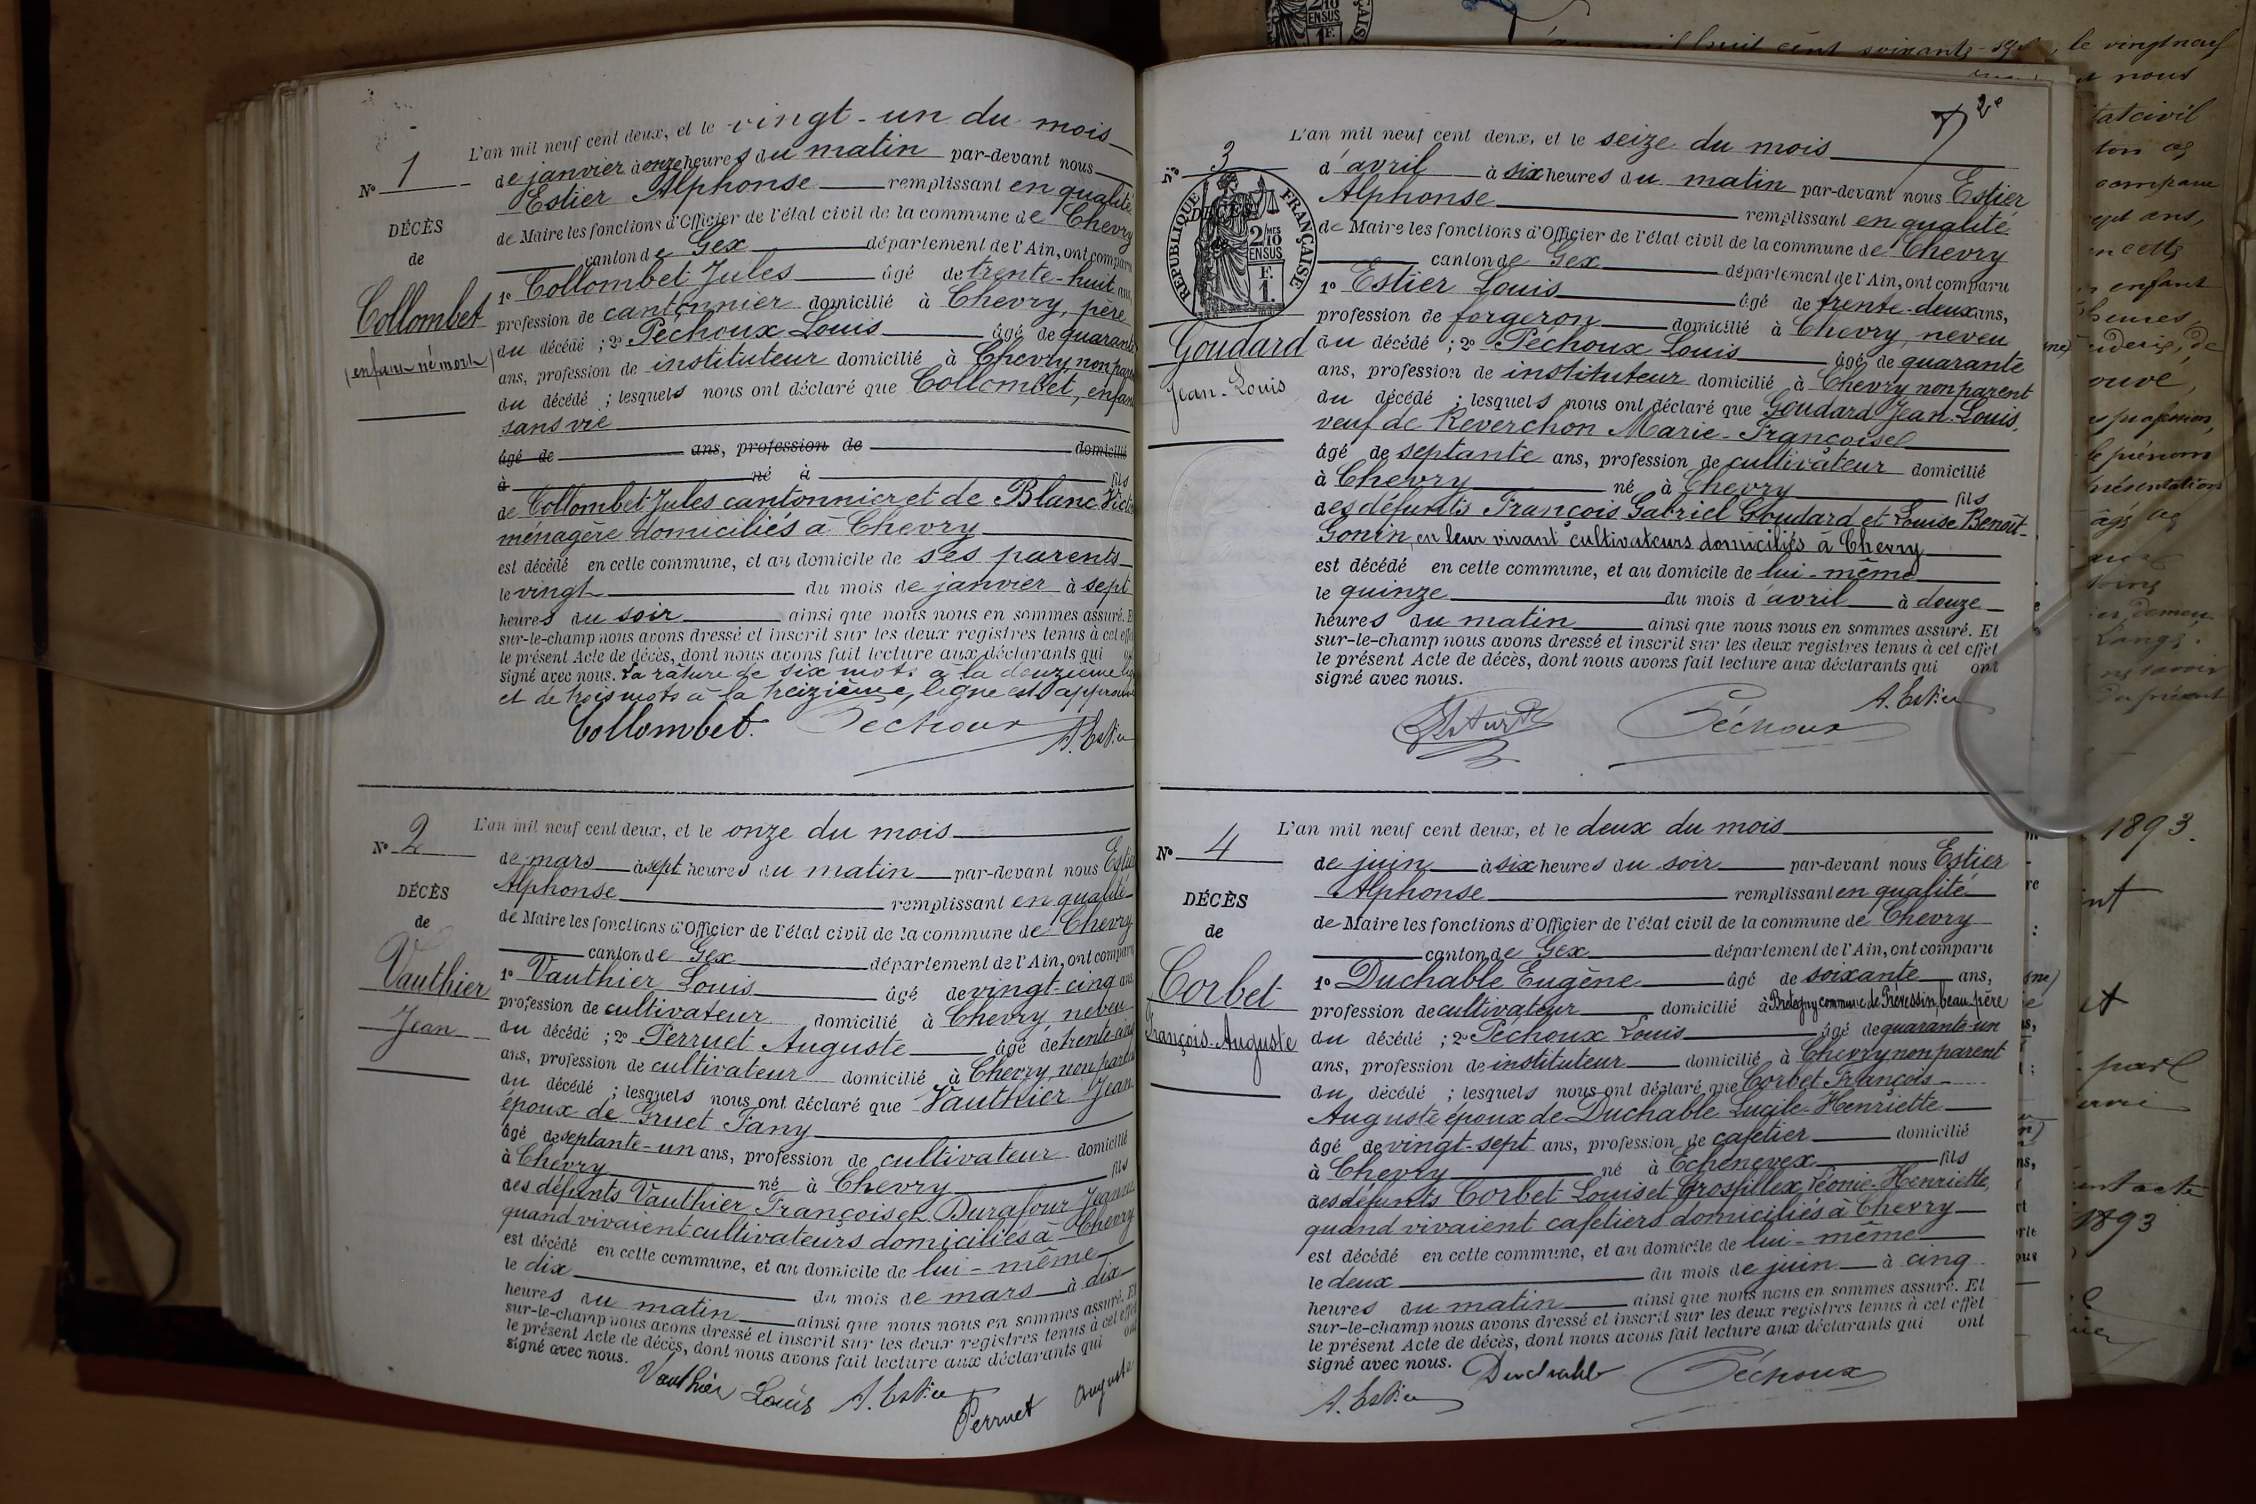 L'an mil neuf cent deux, et le vingt-un du mois
N° 1
de janvier à onze heures du matin par-devant nous
Estier Alphonse remplissant en qualité
DÉCÈS
de Maire les fonctions d'Officier de l'état civil de la commune de Chevry
de
canton de Gex département de l'Ain, ont comparu
Collombet
1° Collombet Jules âgé de trente-huit ans,
profession de cantonnier domicilié à Chevry, père
(enfant né mort)
du décédé ; 2° Péchoux Louis âgé de quarante
ans, profession de instituteur domicilié à Chevry, non parent
du décédé ; lesquels nous ont déclaré que Collombet, enfant
sans vie
âgé de ans, profession de domicilié
à né à fils
de Collombet Jules cantonnier et de Blanc Victo
ménagère domiciliés à Chevry
est décédé en cette commune, et au domicile de ses parents
le vingt du mois de janvier à sept
heures du soir ainsi que nous nous en sommes assuré. Et
sur-le-champ nous avons dressé et inscrit sur les deux registres tenus à cet effet
le présent Acte de décès, dont nous avons fait lecture aux déclarants qui ont
signé avec nous. La râture de six mots à la douzième ligne
et de trois mots à la treizième, ligne est approuvée
Collombet. Péchoux A. Estier
L'an mil neuf cent deux, et le onze du mois
N° 2
de mars à sept heures du matin par-devant nous Estier
Alphonse remplissant en qualité
DÉCÈS
de Maire les fonctions d'Officier de l'état civil de la commune de Chevry
de
canton de Gex département de l'Ain, ont comparu
Vauthier
1° Vauthier Louis âgé de vingt-cinq ans,
profession de cultivateur domicilié à Chevry, neveu
Jean
du décédé ; 2° Perruet Auguste âgé de trente-cinq
ans, profession de cultivateur domicilié à Chevry, non parent
du décédé ; lesquels nous ont déclaré que Vauthier Jean
époux de Gruet Fany
âgé de septante-un ans, profession de cultivateur domicilié
à Chevry né à Chevry fils
des défunts Vauthier François et Durafour Jeanne
quand vivaient cultivateurs domiciliés à Chevry
est décédé en cette commune, et au domicile de lui-même
le dix du mois de mars à dix
heures du matin ainsi que nous nous en sommes assuré. Et
sur-le-champ nous avons dressé et inscrit sur les deux registres tenus à cet effet
le présent Acte de décès, dont nous avons fait lecture aux déclarants qui ont
signé avec nous.
Vauthier Louis A. Estier Perruet Auguste
2e
L'an mil neuf cent deux, et le seize du mois
N° 3
d'avril à six heures du matin par-devant nous Estier
Alphonse remplissant en qualité
RÉPUBLIQUE FRANÇAISE
2/10 MES
EN SUS
1 F.
DÉCÈS
de
de Maire les fonctions d'Officier de l'état civil de la commune de Chevry
canton de Gex département de l'Ain, ont comparu
1° Estier Louis âgé de trente-deux ans,
profession de forgeron domicilié à Chevry, neveu
Goudard
du décédé ; 2° Péchoux Louis âgé de quarante
Jean-Louis
ans, profession de instituteur domicilié à Chevry non parent
du décédé ; lesquels nous ont déclaré que Goudard Jean-Louis,
veuf de Reverchon Marie-Françoise
âgé de septante ans, profession de cultivateur domicilié
à Chevry né à Chevry fils
des défunts François Gabriel Goudard et Louise Benoît-
Gonin, en leur vivant cultivateurs domiciliés à Chevry
est décédé en cette commune, et au domicile de lui-même
le quinze du mois d'avril à douze
heures du matin ainsi que nous nous en sommes assuré. Et
sur-le-champ nous avons dressé et inscrit sur les deux registres tenus à cet effet
le présent Acte de décès, dont nous avons fait lecture aux déclarants qui ont
signé avec nous.
Péchoux A. Estier
L'an mil neuf cent deux, et le deux du mois
N° 4
de juin à six heures du soir par-devant nous Estier
Alphonse remplissant en qualité
DÉCÈS
de Maire les fonctions d'Officier de l'état civil de la commune de Chevry
de
canton de Gex département de l'Ain, ont comparu
Corbet
1° Duchable Eugène âgé de soixante ans,
profession de cultivateur domicilié à Bretegny commune de Prévessin, beau-père
François-Auguste
du décédé ; 2° Péchoux Louis âgé de quarante-un
ans, profession de instituteur domicilié à Chevry non parent
du décédé ; lesquels nous ont déclaré que Corbet François-
Auguste époux de Duchable Lucile-Henriette
âgé de vingt-sept ans, profession de cafetier domicilié
à Chevry né à Echenevex fils
des défunts Corbet Louis et Grosfillex Léonie-Henriette,
quand vivaient cafetiers domiciliés à Chevry
est décédé en cette commune, et au domicile de lui-même
le deux du mois de juin à cinq
heures du matin ainsi que nous nous en sommes assuré. Et
sur-le-champ nous avons dressé et inscrit sur les deux registres tenus à cet effet
le présent Acte de décès, dont nous avons fait lecture aux déclarants qui ont
signé avec nous. Duchable Péchoux
A. Estier
mil huit cent soixante-, le vingt neuf
nous
1893.
1893